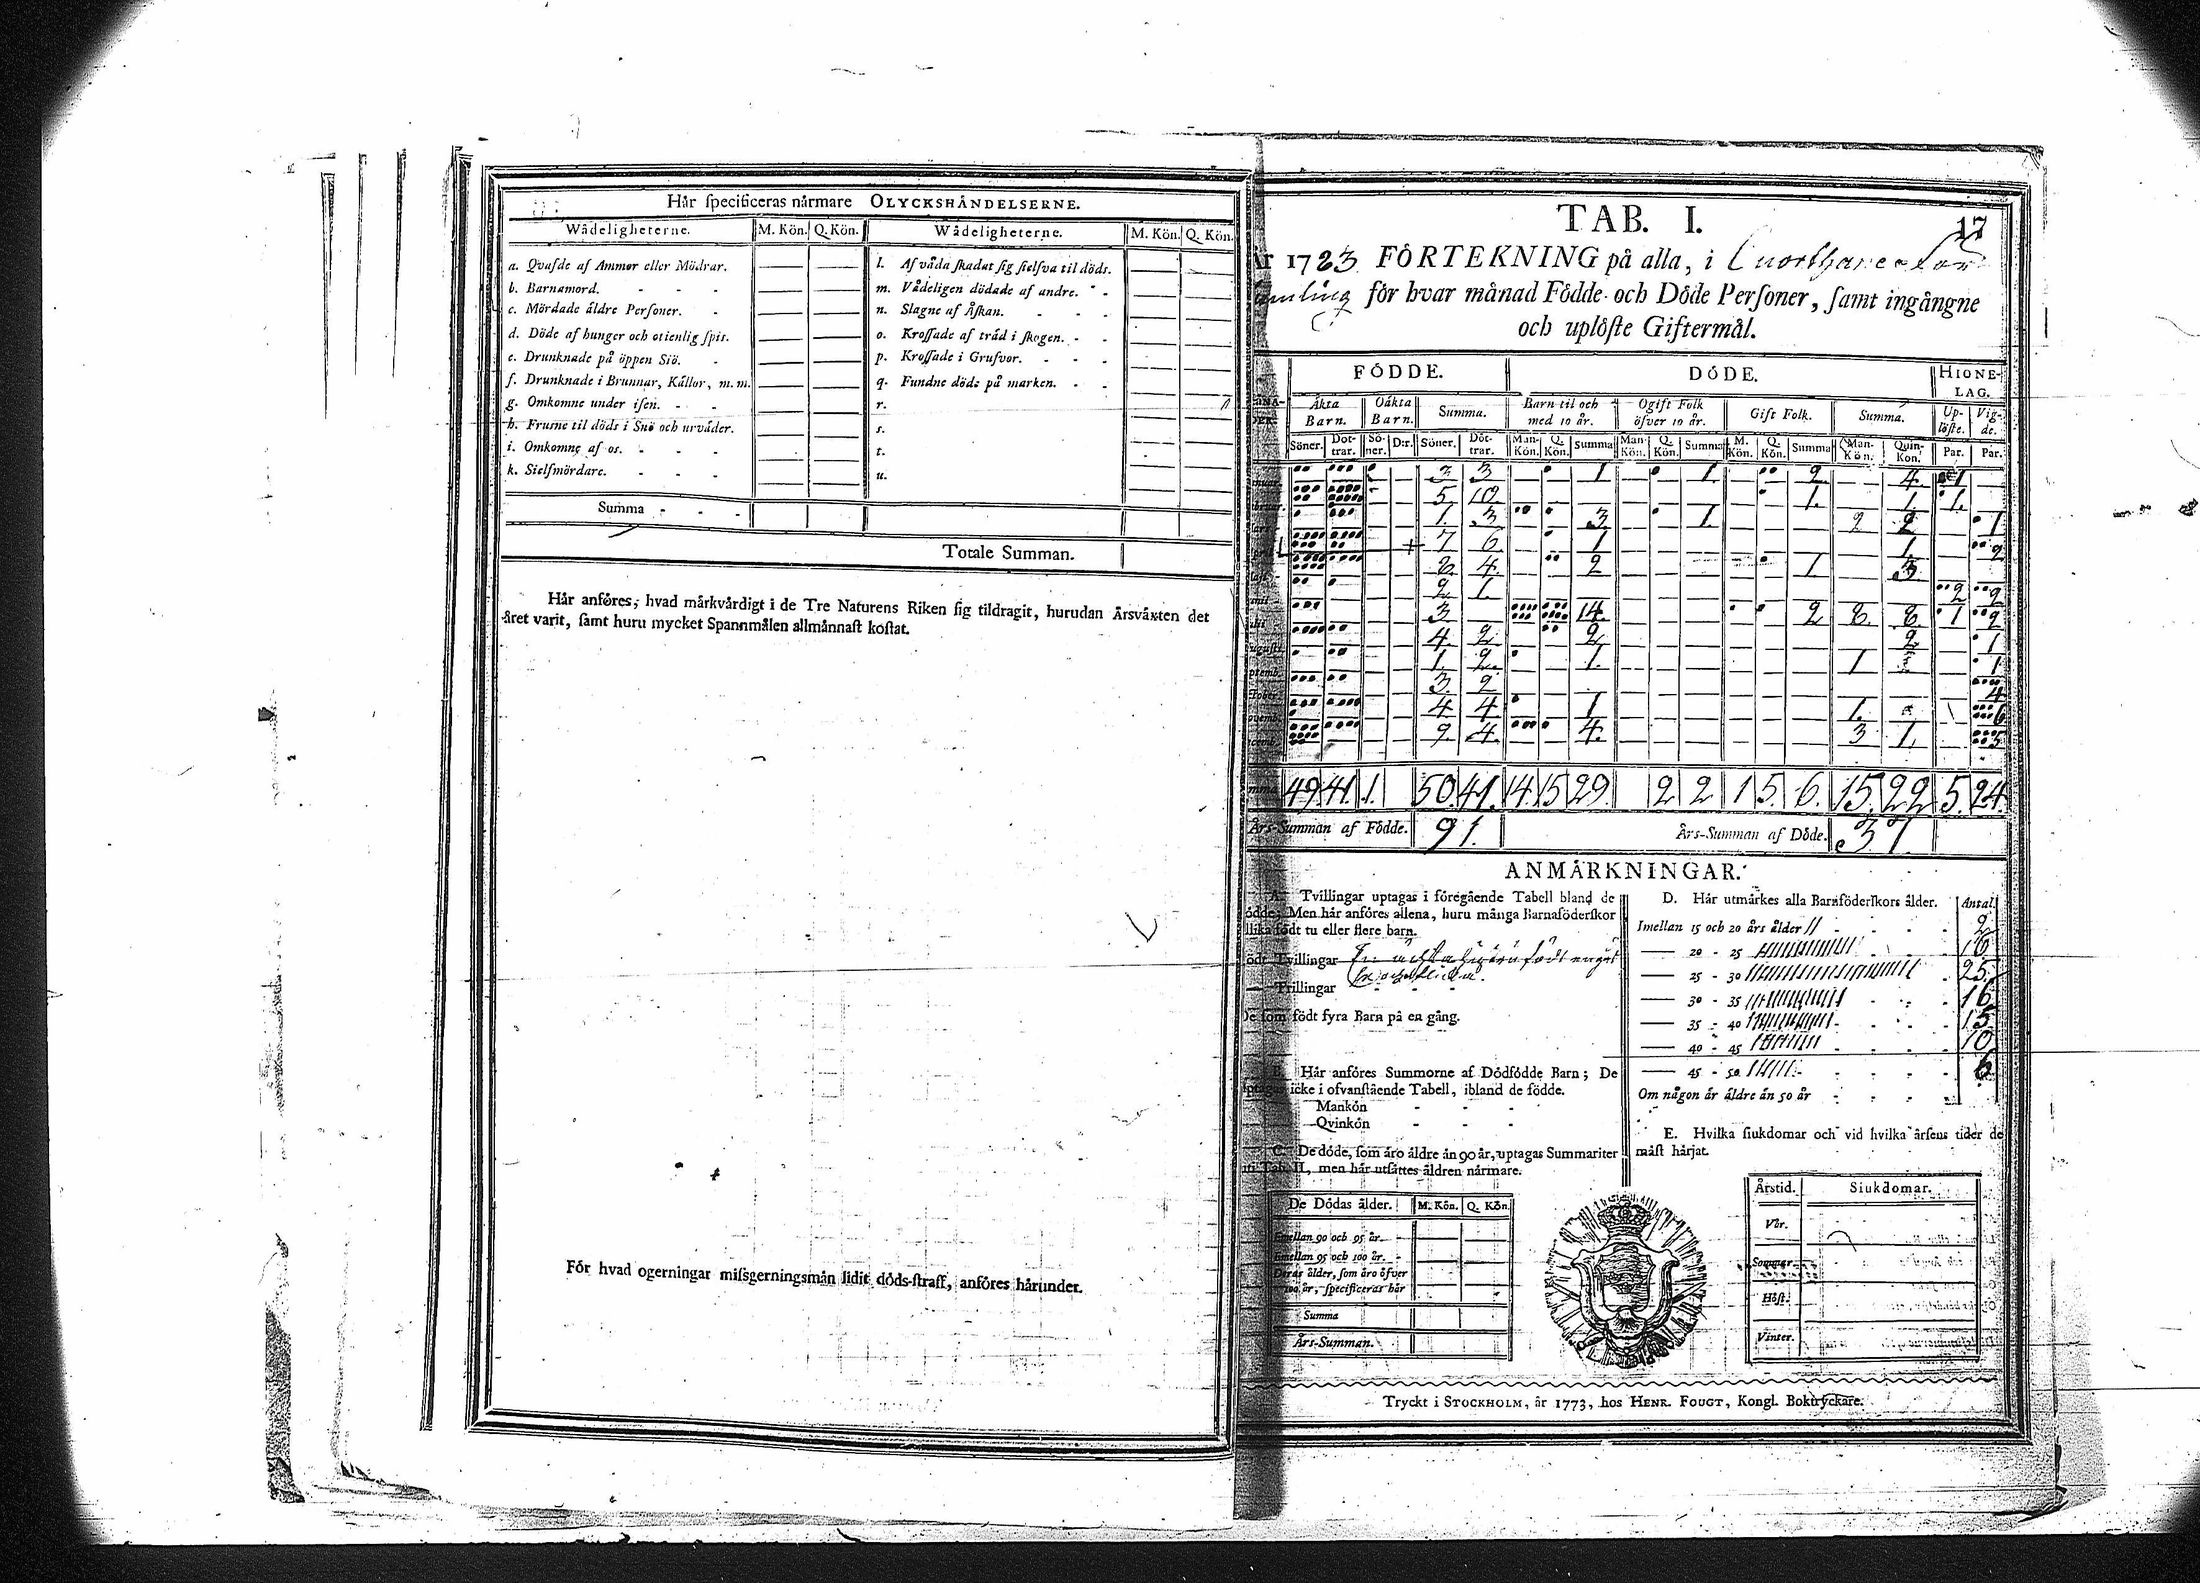 Hår specificeras nårmare OLYCKSHÅNDELSERNE.
Wådeligheterne. M. Kön. Q. Kön. Wådeligheterne. M. Kön. Q. Kön.
a. Qvafde af Ammor eller Mödrar. l. Af våda skadat sig sielfva til döds.
b. Barnamord. - - - m. Vådeligen dödade af andre. - -
c. Mördade äldre Personer. - n. Slagne af Åskan. - - -
d. Döde af hunger och otienlig spis. o. Krossade af tråd i skogen. - -
e. Drunknade på öppen Siö. - p. Krossade i Grufvor. - - -
f. Drunknade i Brunnar, Källor, m. m. q. Fundne döde på marken. - -
g. Omkomne under isen. - - r.
h. Frusne til döds i Snö och urväder. s.
i. Omkomne af os. - - - t.
k. Sielfmördare. - - u.
Summa - - -
Totale Summan.
Hår anföres, hvad mårkvårdigt i de Tre Naturens Riken sig tildragit, hurudan Årsvåxten det
året varit, samt huru mycket Spannmålen allmånnast kostat.
För hvad ogerningar missgerningsmån lidit döds-straff, anföres hårunder.
TAB. I. 17
År 1783 FÖRTEKNING på alla, i
för hvar månad Födde och Döde Personer, samt ingångne
och uplöste Giftermål.
FÖDDE. DÖDE. HIONE-
LAG.
Åkta Barn. Oåkta Barn. Summa. Barn til och med 10 år. Ogift Folk öfver 10 år. Gift Folk. Summa. Up-löste. Vig-de.
Söner. Döt-trar. Sö-ner. D:r. Söner. Döt-trar. Man-Kön. Q. Kön. Summa Man-Kön. Q. Kön. Summa M. Kön. Q. Kön. Summa Man-Kön. Quin-Kön. Par. Par.
3 3 1 1 2 4 1
5 10 1 1 1
1 3 3 1 2 2 1
7 6 1 1 2
8 4 2 1 3
2 1 2 2
3 14 2 8 8 1 2
4 2 2 2 1
1 2 1 1 1
3 2 4
4 4 1 1 6
9 4 4 3 1 5
49 41 1 50 41 14 15 29 2 2 1 5 6 15 22 5 24
Års-Summan af Födde. 91. Års-Summan af Döde. 37
ANMÅRKNINGAR.
A. Tvillingar uptagas i föregående Tabell bland de
födde; Men hår anföres allena, huru många Barnaföderskor
födt tu eller flere barn.
Tvillingar
Trillingar - - -
De som födt fyra Barn på en gång.
B. Hår anföres Summorne af Dödfödde Barn; De
uptagas icke i ofvanstående Tabell, ibland de födde.
Mankön - - -
Qvinkön - - -
C. De döde, som åro åldre ån 90 år, uptagas Summariter
uti Tab. II, men hår utsåttes åldren nårmare.
De Dödas ålder. M. Kön. Q. Kön.
Emellan 90 och 95 år.
Emellan 95 och 100 år. -
Deras ålder, som åro öfver
100 år, specificeras hår
Summa
Års-Summan.
D. Hår utmårkes alla Barnföderskors ålder. Antal.
Imellan 15 och 20 års ålder 2
20 - 25 18
25 - 30 25
30 - 35 16
35 - 40 13
40 - 45 10
45 - 50 6
Om någon år åldre ån 50 år
E. Hvilka siukdomar och vid hvilka årsens tider de
måst hårjat.
Årstid. Siukdomar.
Vår.
Sommar.
Höst.
Vinter.
Tryckt i STOCKHOLM, år 1773, hos HENR. FOUGT, Kongl. Boktryckare.